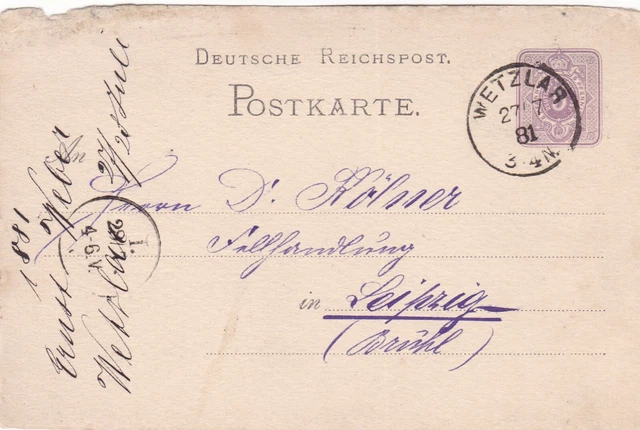 DEUTSCHE REICHSPOST.
POSTKARTE.
WETZLAR
27 7
81
3-4N.
An
Herrn Dr. Köhner
Fellhandlung
in Leipzig
(Brühl)
1881
Ernst Weber
Wetzlar 27/28 Juli
I.
4-6V